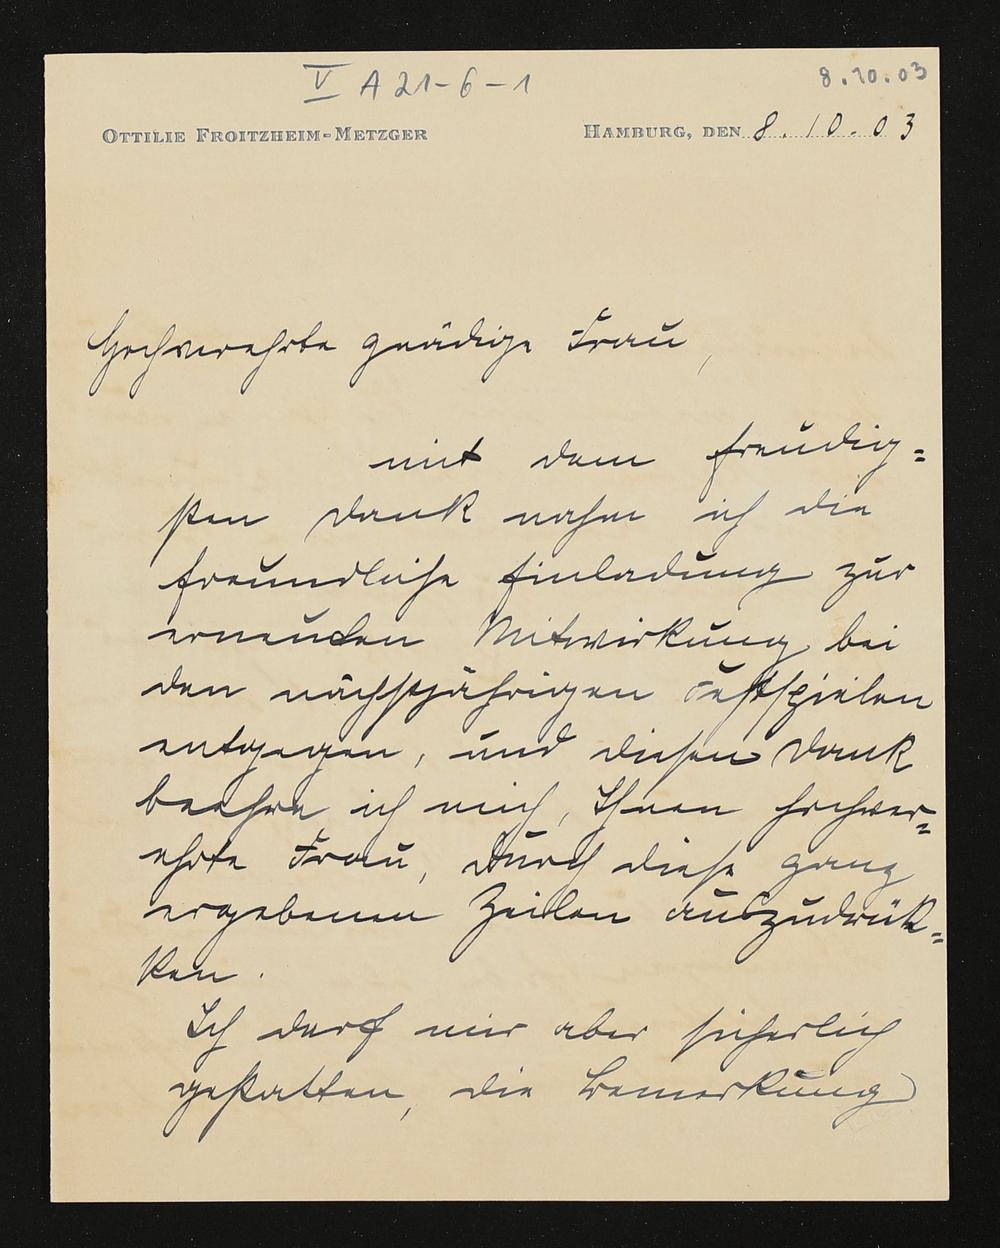 V A 21-6-1
8.10.03
OTTILIE FROITZHEIM-METZGER
HAMBURG, DEN 8. 10. 03
Hochverehrte gnädige Frau,
mit dem freudig=
sten Dank nahm ich die
freundliche Einladung zur
erneuten Mitwirkung bei
den nächstjährigen Festspielen
entgegen, und diesen Dank
beehre ich mich, Ihnen hochver=
ehrte Frau, durch diese ganz
ergebenen Zeilen auszudrük=
ken.
Ich darf mir aber sicherlich
gestatten, die Bemerkung